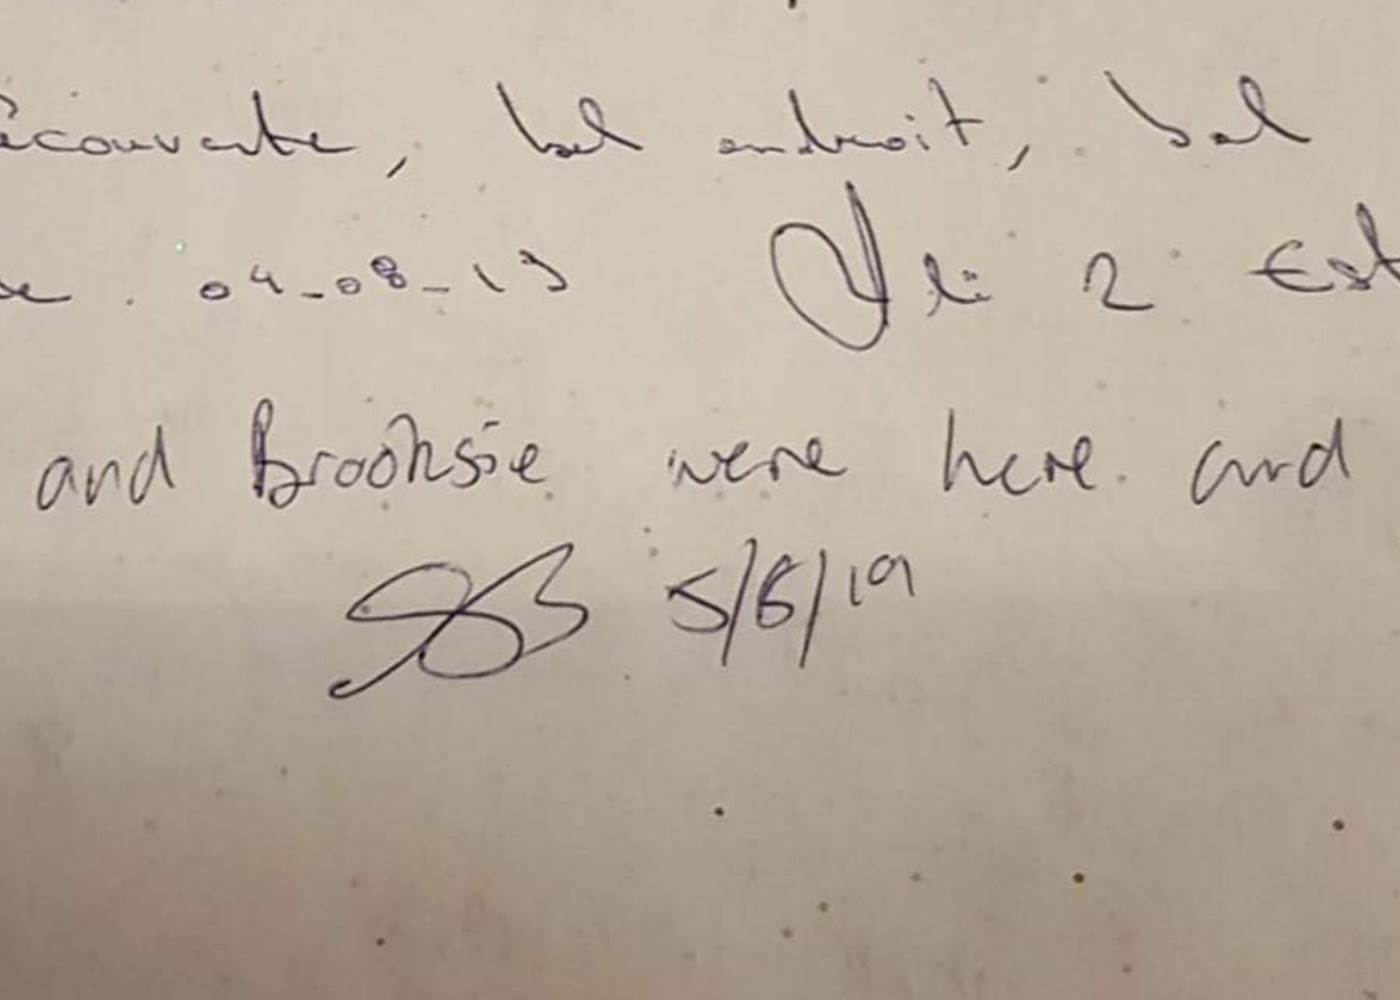 écouverte, bel endroit, bel
04-08-19 2 Est
and Brooksie were here and
SB 5/8/19